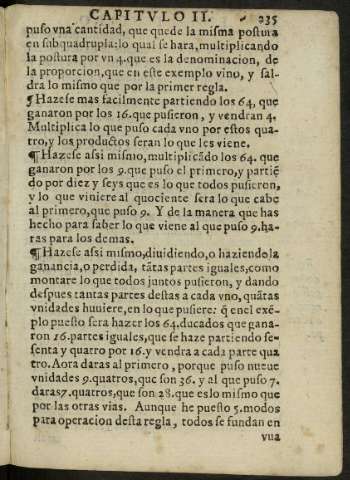 CAPITVLO II. 235
puso vna cantidad, que quede la misma postura
en subquadrupla: lo qual se hara, multiplicando
la postura por vn 4. que es la denominacion, de
la proporcion, que en este exemplo vino, y sal-
dra lo mismo que por la primer regla.
¶ Hazese mas facilmente partiendo los 64, que
ganaron por los 16. que pusieron, y vendran 4.
Multiplica lo que puso cada vno por estos qua-
tro, y los productos seran lo que les viene.
¶ Hazese assi mismo, multiplicãdo los 64. que
ganaron por los 9. que puso el primero, y partiẽ
do por diez y seys que es lo que todos pusieron,
y lo que viniere al quociente sera lo que cabe
al primero, que puso 9. Y de la manera que has
hecho para saber lo que viene al que puso 9. ha-
ras para los demas.
¶ Hazese assi mismo, diuidiendo, o haziendo la
ganancia, o perdida, tãtas partes iguales, como
montare lo que todos juntos pusieron, y dando
despues tantas partes destas a cada vno, quãtas
vnidades huuiere, en lo que pusiere: q̃ enel exẽ-
plo puesto sera hazer los 64. ducados que gana-
ron 16. partes iguales, que se haze partiendo se-
senta y quatro por 16. y vendra a cada parte qua
tro. Aora daras al primero, porque puso nueue
vnidades 9. quatros, que son 36. y al que puso 7.
daras 7. quatros, que son 28. que es lo mismo que
por las otras vias. Aunque he puesto 5. modos
para operacion desta regla, todos se fundan en
vna